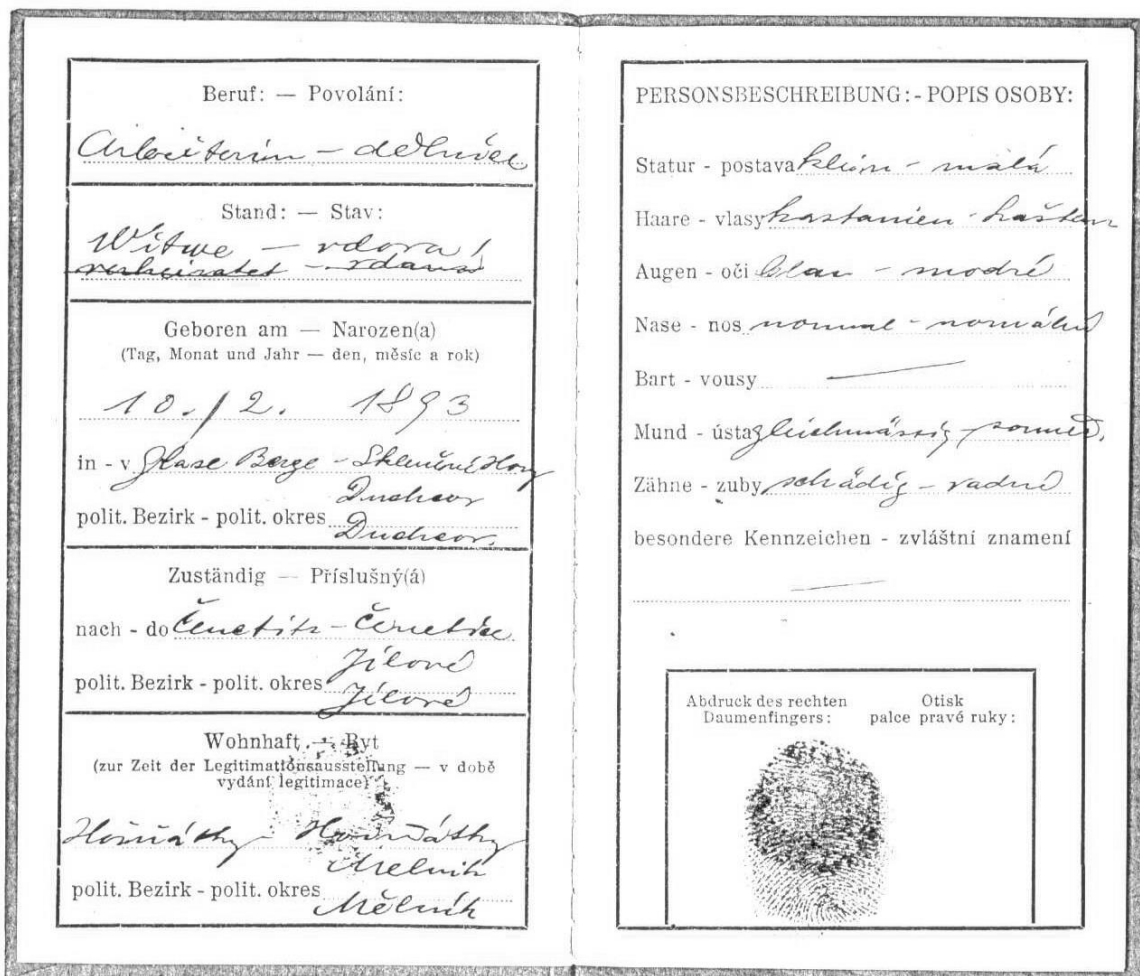 Beruf: — Povolání:
Arbeiterin – dělnice
Stand: — Stav:
Witwe – vdova
verheiratet – vdaná
Geboren am — Narozen(a)
(Tag, Monat und Jahr — den, měsíc a rok)
10. /2. 1893
in - v Glase Berge –
Duchcov
polit. Bezirk - polit. okres Duchcov.
Zuständig — Příslušný(á)
nach - do
Jílové
polit. Bezirk - polit. okres Jílové
Wohnhaft — Byt
(zur Zeit der Legitimationsausstellung — v době
vydání legitimace)
Hořňátky Hořňátky
Melnik
polit. Bezirk - polit. okres Mělník
PERSONSBESCHREIBUNG: - POPIS OSOBY:
Statur - postava klein – malá
Haare - vlasy kastanien – kaštan
Augen - oči blau – modré
Nase - nos normal – normální
Bart - vousy —
Mund - ústa gleichmässig – souměr.
Zähne - zuby schädig – vadné
besondere Kennzeichen - zvláštní znamení
—
Abdruck des rechten Otisk
Daumenfingers: palce pravé ruky: